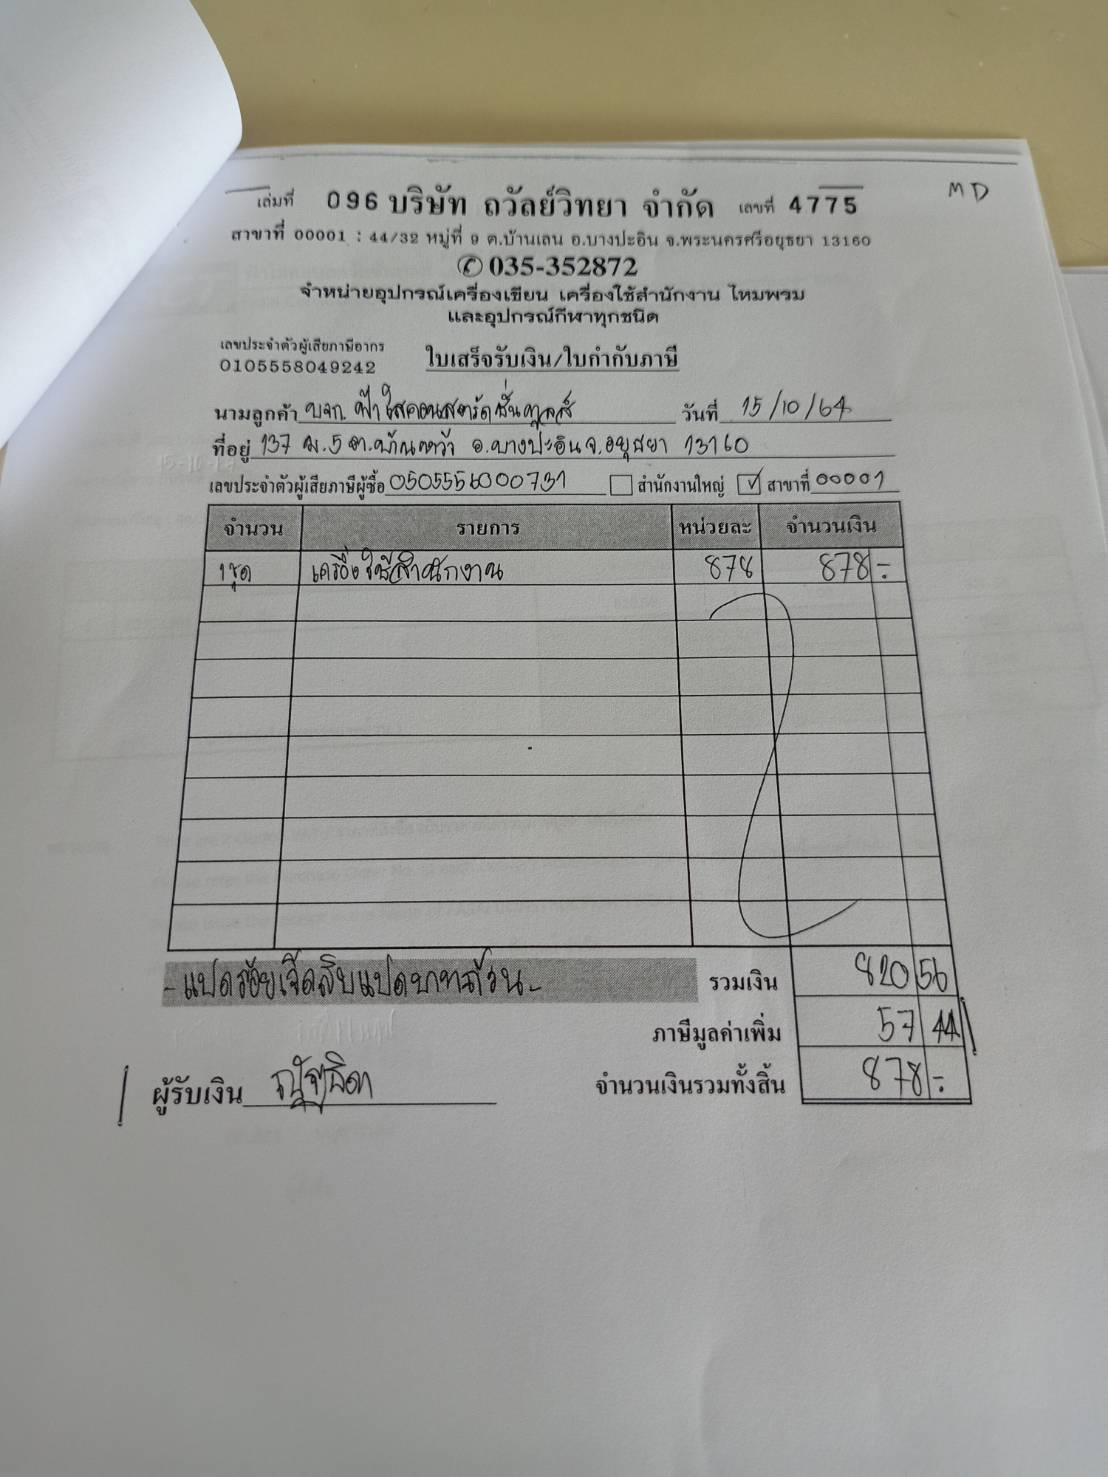 MD
เล่มที่ 096 บริษัท ถวัลย์วิทยา จำกัด เลขที่ 4775
สาขาที่ 00001 : 44/32 หมู่ที่ 9 ต.บ้านเลน อ.บางปะอิน จ.พระนครศรีอยุธยา 13160
✆ 035-352872
จำหน่ายอุปกรณ์เครื่องเขียน เครื่องใช้สำนักงาน ไหมพรม
และอุปกรณ์กีฬาทุกชนิด
เลขประจำตัวผู้เสียภาษีอากร
0105558049242
ใบเสร็จรับเงิน/ใบกำกับภาษี
นามลูกค้า บจก. ฟ้าใสคอนสตรัคชั่นทูลส์ วันที่ 15/10/64
ที่อยู่ 137 ม.5 ต.บ้านหว้า อ.บางปะอิน จ.อยุธยา 13160
เลขประจำตัวผู้เสียภาษีผู้ซื้อ 0505556000731 สำนักงานใหญ่ ✓ สาขาที่ 00001
จำนวน รายการ หน่วยละ จำนวนเงิน
1ชุด เครื่องใช้สำนักงาน 878 878 -
-แปดร้อยเจ็ดสิบแปดบาทถ้วน- รวมเงิน 820 56
ภาษีมูลค่าเพิ่ม 57 44
ผู้รับเงิน จำนวนเงินรวมทั้งสิ้น 878 -